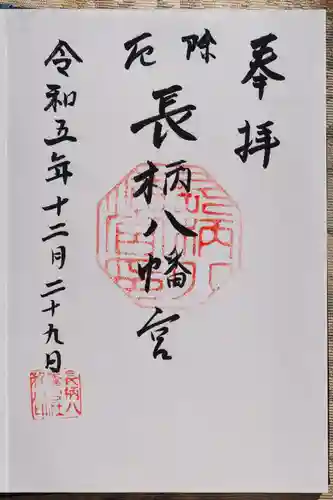 奉拝
除厄
長柄八幡宮
令和五年十二月二十九日